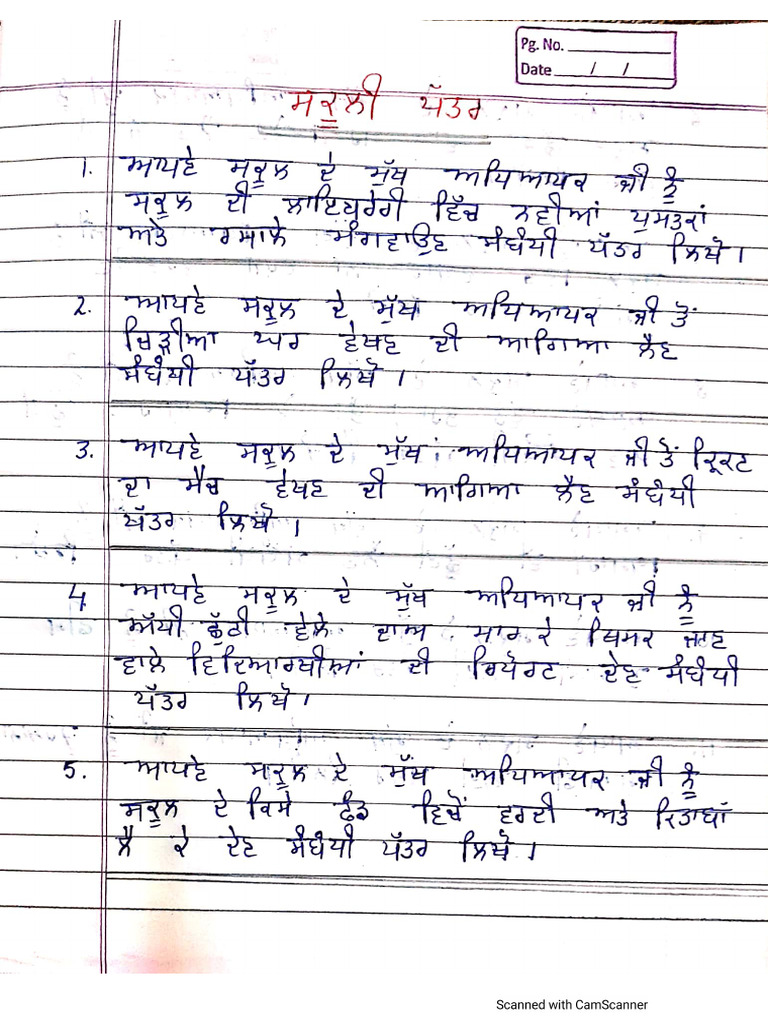 Pg. No.
Date / /
ਸਕੂਲੀ ਪੱਤਰ
1. ਆਪਣੇ ਸਕੂਲ ਦੇ ਮੁੱਖ ਅਧਿਆਪਕ ਜੀ ਨੂੰ
ਸਕੂਲ ਦੀ ਲਾਇਬਰੇਰੀ ਵਿੱਚ ਨਵੀਆਂ ਪੁਸਤਕਾਂ
ਅਤੇ ਰਸਾਲੇ ਮੰਗਵਾਉਣ ਸੰਬੰਧੀ ਪੱਤਰ ਲਿਖੋ।
2. ਆਪਣੇ ਸਕੂਲ ਦੇ ਮੁੱਖ ਅਧਿਆਪਕ ਜੀ ਤੋਂ
ਚਿੜੀਆ ਘਰ ਵੇਖਣ ਦੀ ਆਗਿਆ ਲੈਣ
ਸੰਬੰਧੀ ਪੱਤਰ ਲਿਖੋ।
3. ਆਪਣੇ ਸਕੂਲ ਦੇ ਮੁੱਖ ਅਧਿਆਪਕ ਜੀ ਤੋਂ ਕ੍ਰਿਕਟ
ਦਾ ਮੈਚ ਵੇਖਣ ਦੀ ਆਗਿਆ ਲੈਣ ਸੰਬੰਧੀ
ਪੱਤਰ ਲਿਖੋ।
4 ਆਪਣੇ ਸਕੂਲ ਦੇ ਮੁੱਖ ਅਧਿਆਪਕ ਜੀ ਨੂੰ
ਅੱਧੀ ਛੁੱਟੀ ਵੇਲੇ ਦਾਅ ਮਾਰ ਕੇ ਖਿਸਕ ਜਾਣ
ਵਾਲੇ ਵਿਦਿਆਰਥੀਆਂ ਦੀ ਰਿਪੋਰਟ ਦੇਣ ਸੰਬੰਧੀ
ਪੱਤਰ ਲਿਖੋ।
5. ਆਪਣੇ ਸਕੂਲ ਦੇ ਮੁੱਖ ਅਧਿਆਪਕ ਜੀ ਨੂੰ
ਸਕੂਲ ਦੇ ਕਿਸੇ ਫੰਡ ਵਿਚੋਂ ਵਰਦੀ ਅਤੇ ਕਿਤਾਬਾਂ
ਲੈ ਕੇ ਦੇਣ ਸੰਬੰਧੀ ਪੱਤਰ ਲਿਖੋ।
Scanned with CamScanner